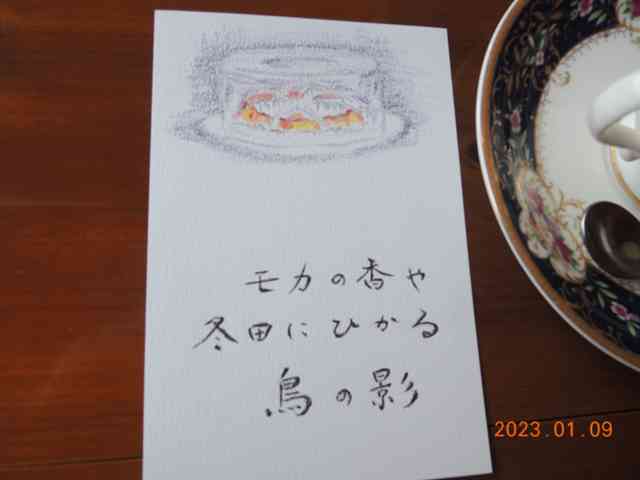 モカの香や
冬田にひかる
鳥の影
2023.01.09